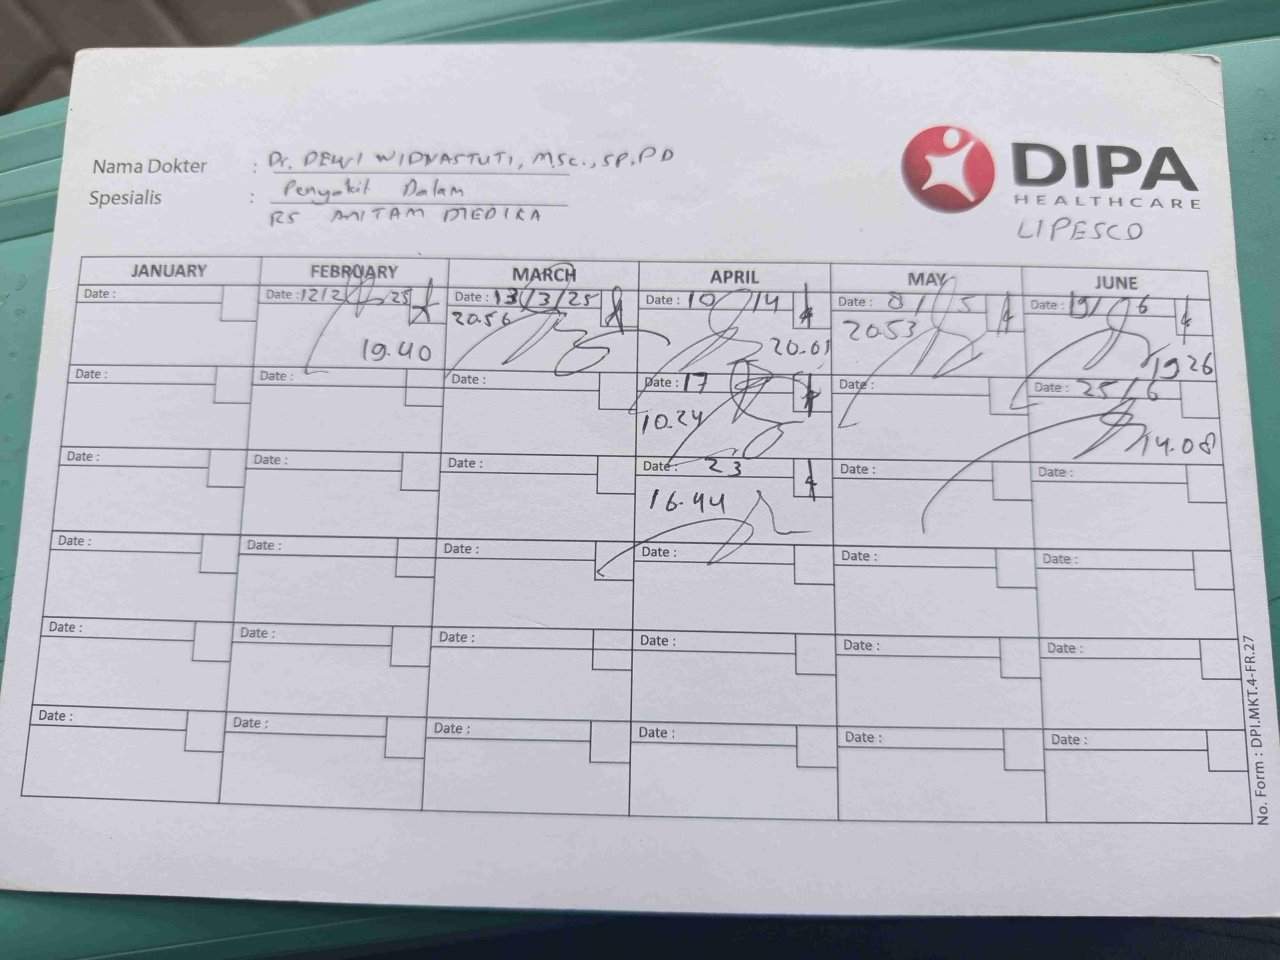 Nama Dokter : Dr. DEWI WIDYASTUTI, M.Sc., SP.PD
Spesialis : Penyakit Dalam
RS MITAM MEDIKA
DIPA
HEALTHCARE
LIPESCO
JANUARY FEBRUARY MARCH APRIL MAY JUNE
Date : Date : 12/2/25 Date : 13/3/25 Date : 10/4 Date : 8/5 Date : 19/6
19.40 20.56 20.01 20.53 1926
Date : Date : Date : Date : 17 Date : Date : 25/6
10.24 14.08
Date : Date : Date : Date : 23 Date : Date :
16.44
Date : Date : Date : Date : Date : Date :
Date : Date : Date : Date : Date : Date :
Date : Date : Date : Date : Date : Date :
No. Form : DPI.MKT.4-FR.27